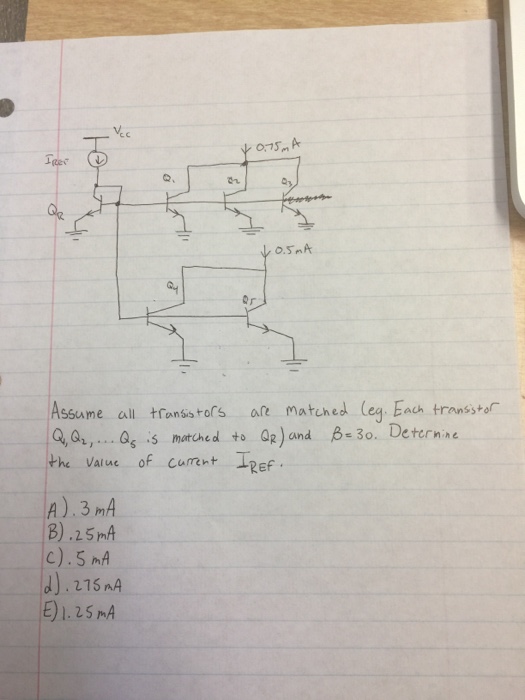 Vcc
IREF
0.75mA
Q1
Q2
Q3
QR
0.5mA
Q4
Q5
Assume all transistors are matched (eg. Each transistor
Q1, Q2, ... Q5 is matched to QR) and β=30. Determine
the value of current IREF.
A) .3 mA
B) .25mA
C) .5 mA
d) .275mA
E) 1.25mA